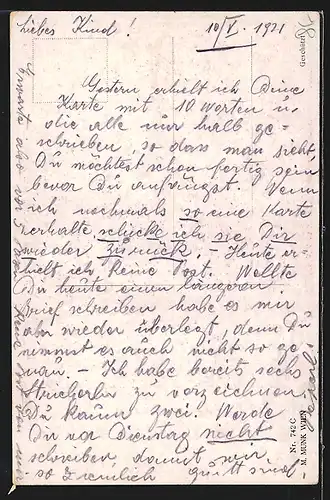 liebes Kind!
10/V. 1921
Gestern erhielt ich Deine
Karte mit 10 Worten u.
die alle nur halb ge-
schrieben, so dass man sieht,
Du möchtest schon fertig sein
bevor Du anfängst. Wenn
ich nochmals so eine Karte
erhalte schicke ich sie Dir
wieder zurück. - Heute er-
hielt ich keine Post. Wollte
Du heute einen längeren
Brief schreiben habe es mir
aber wieder überlegt, denn Du
nimmst es auch nicht so ge-
nau. - Ich habe bereits sechs
zu verzeichnen.
Du kaum zwei. Werde
Du vor Dienstag nicht
schreiben, damit wir
so ziemlich quitt sind.
Geschützt
Nr. 742 C
M. MUNK WIEN